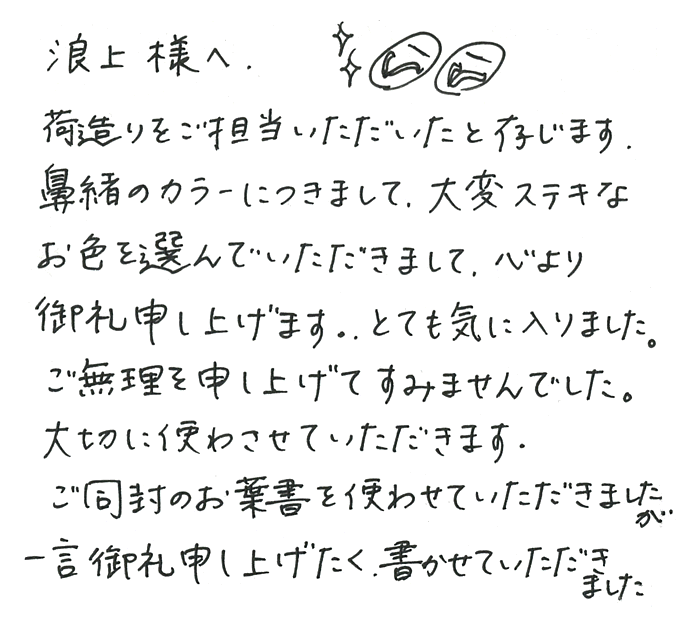 浪上様へ.
荷造りをご担当いただいたと存じます.
鼻緒のカラーにつきまして.大変ステキな
お色を選んでいただきまして.心より
御礼申し上げます..とても気に入りました。
ご無理を申し上げてすみませんでした。
大切に使わさせていただきます.
ご同封のお葉書を使わせていただきましたが
一言御礼申し上げたく.書かせていただきました